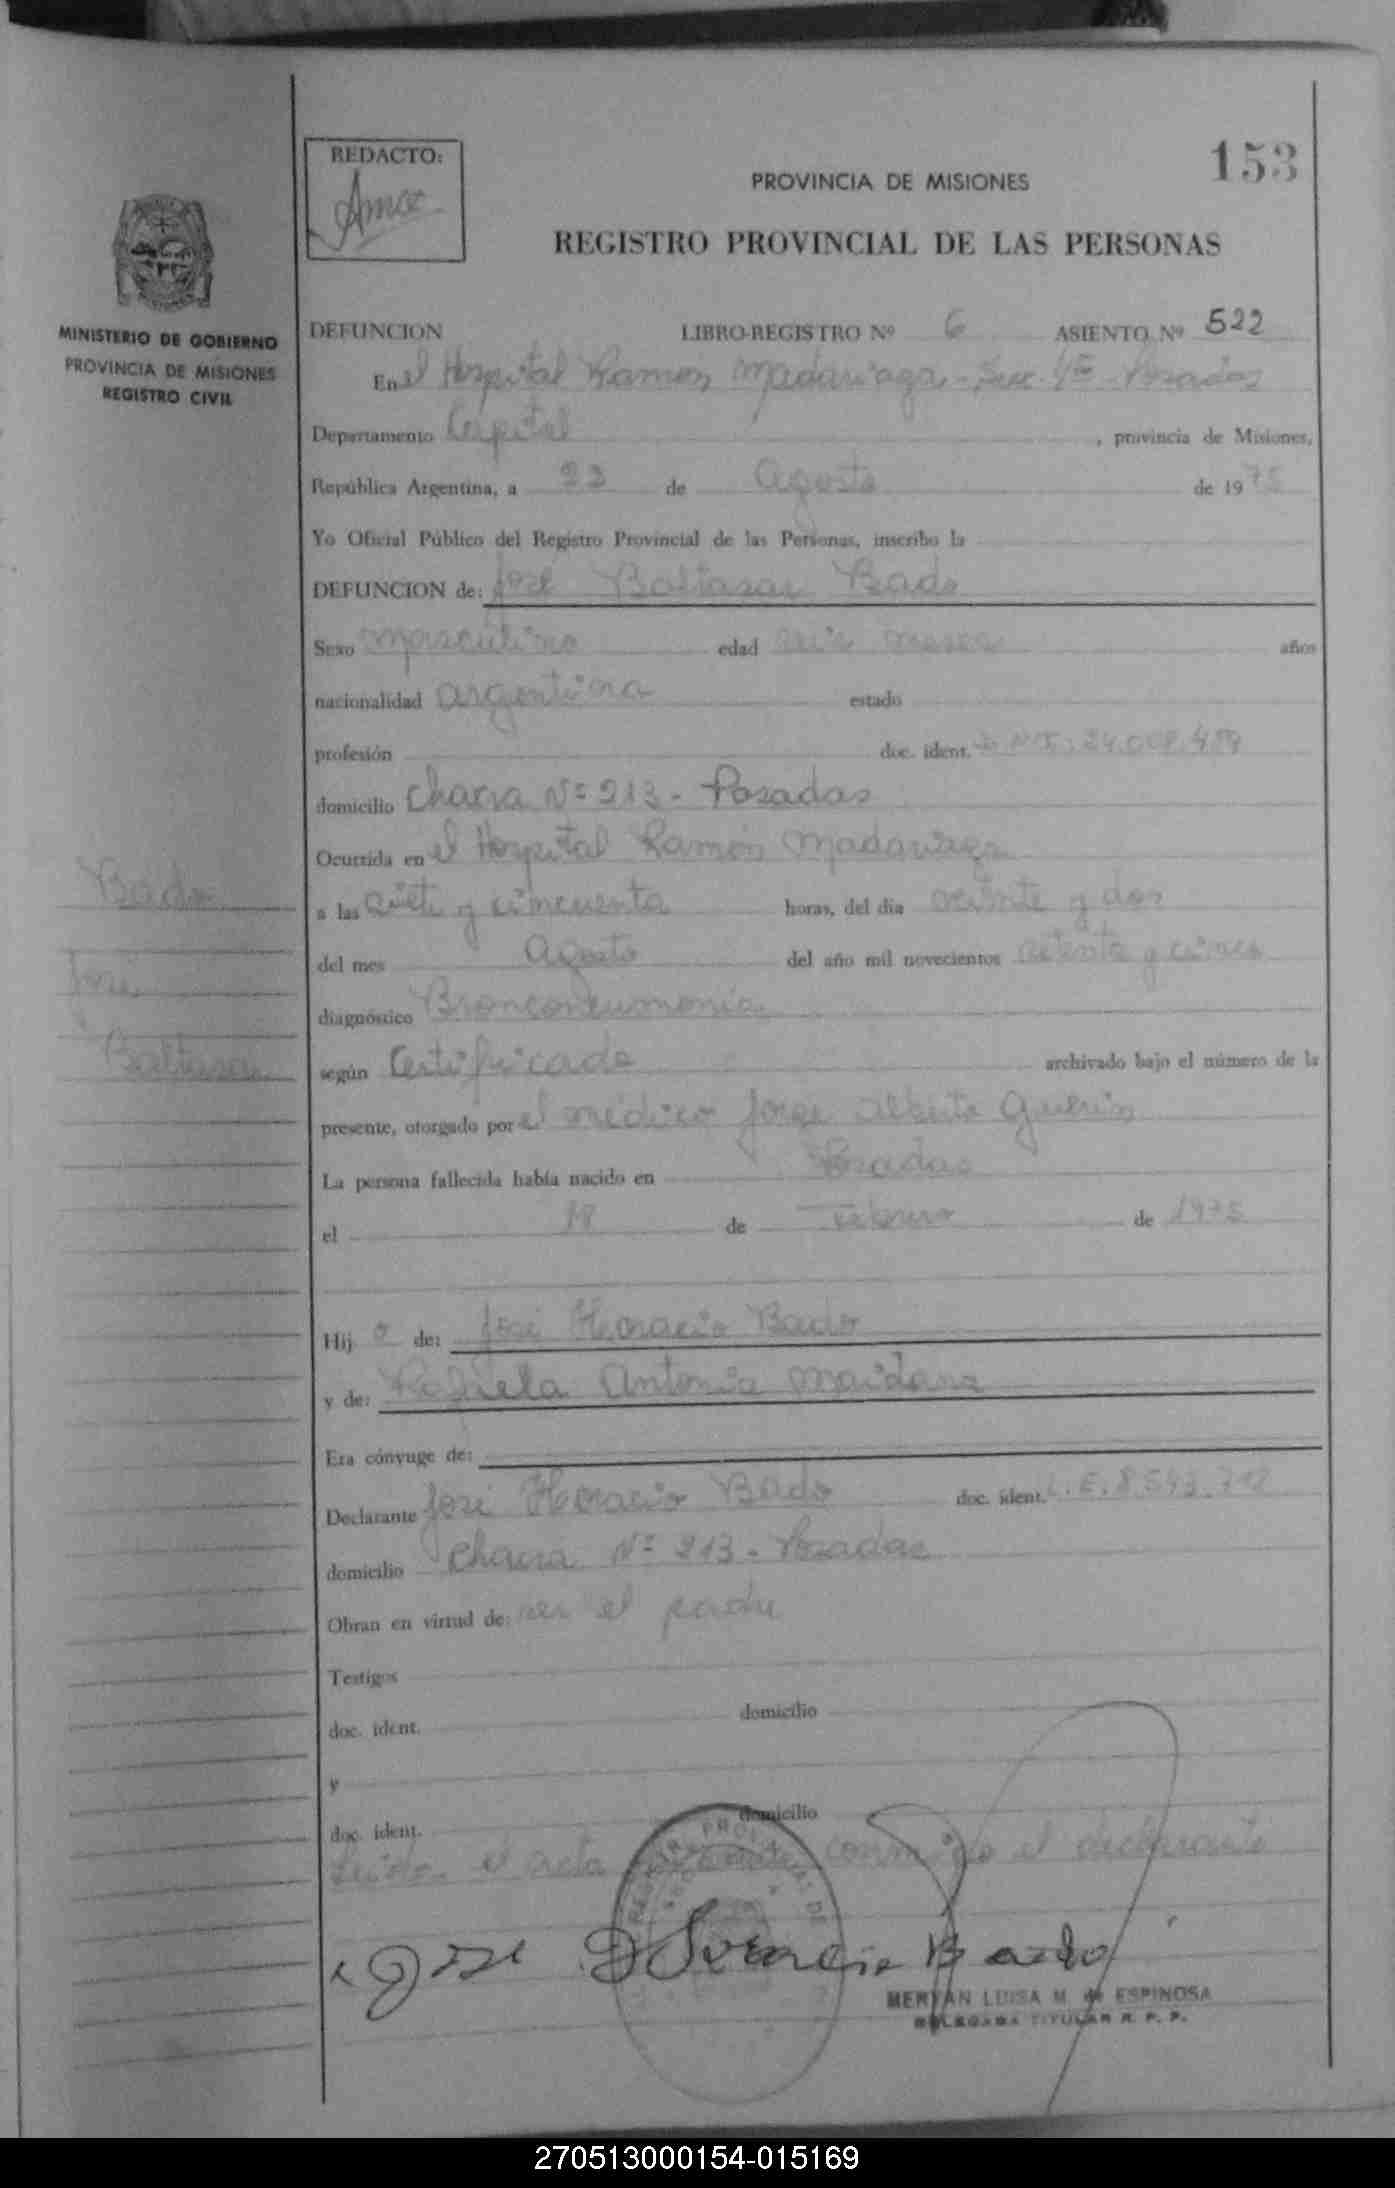 153
REDACTO:
PROVINCIA DE MISIONES
REGISTRO PROVINCIAL DE LAS PERSONAS
MINISTERIO DE GOBIERNO
PROVINCIA DE MISIONES
REGISTRO CIVIL
DEFUNCION LIBRO-REGISTRO Nº 6 ASIENTO Nº 522
En el Hospital Ramon Madariaga - Sec. 4ta - Posadas
Departamento Capital, provincia de Misiones,
República Argentina, a 23 de Agosto de 1975
Yo Oficial Público del Registro Provincial de las Personas, inscribo la
DEFUNCION de: José Baltasar Bado
Sexo masculino edad seis meses años
nacionalidad argentina estado
profesión doc. ident.
domicilio Chacra Nº 213 - Posadas
Ocurrida en el Hospital Ramón Madariaga
a las siete y cincuenta horas, del día veinte y dos
del mes Agosto del año mil novecientos setenta y cinco
diagnóstico Bronconeumonia
según Certificado archivado bajo el número de la
presente, otorgado por el médico Jorge Alberto
La persona fallecida había nacido en Posadas
el 18 de Febrero de 1975
Hijo de: José Horacio Bado
y de: Antonia Maidana
Era cónyuge de:
Declarante José Horacio Bado doc. ident. L.E. 8.543.712
domicilio Chacra Nº 213 - Posadas
Obran en virtud de: ser el padre
Testigos
doc. ident. domicilio
y
doc. ident. domicilio
Leída el acta el declarante
Jose Horacio Bado
MERYAN LUISA M. de ESPINOSA
DELEGADA TITULAR R. P. P.
Bado
José
Baltasar
270513000154-015169